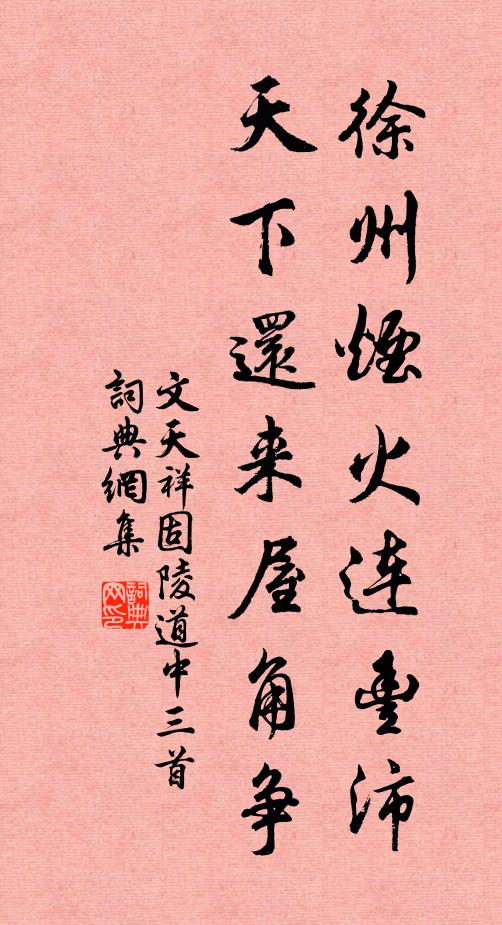 徐州煙火連豊沛
天下還来屋角争
文天祥固陵道中三首
詞典網集
詞典网印